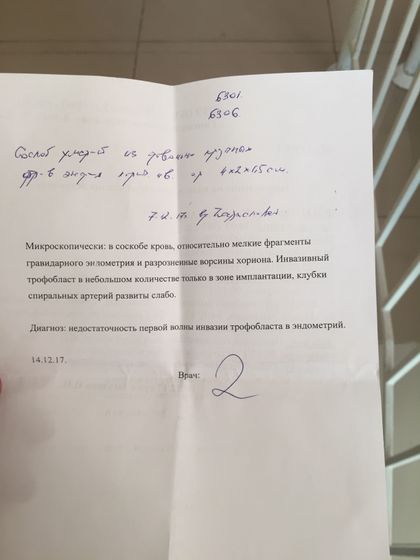 6301
6306
Соскоб из довольно крупных
4x2x1,5 см.
Микроскопически: в соскобе кровь, относительно мелкие фрагменты
гравидарного эндометрия и разрозненные ворсины хориона. Инвазивный
трофобласт в небольшом количестве только в зоне имплантации, клубки
спиральных артерий развиты слабо.
Диагноз: недостаточность первой волны инвазии трофобласта в эндометрий.
14.12.17.
Врач: